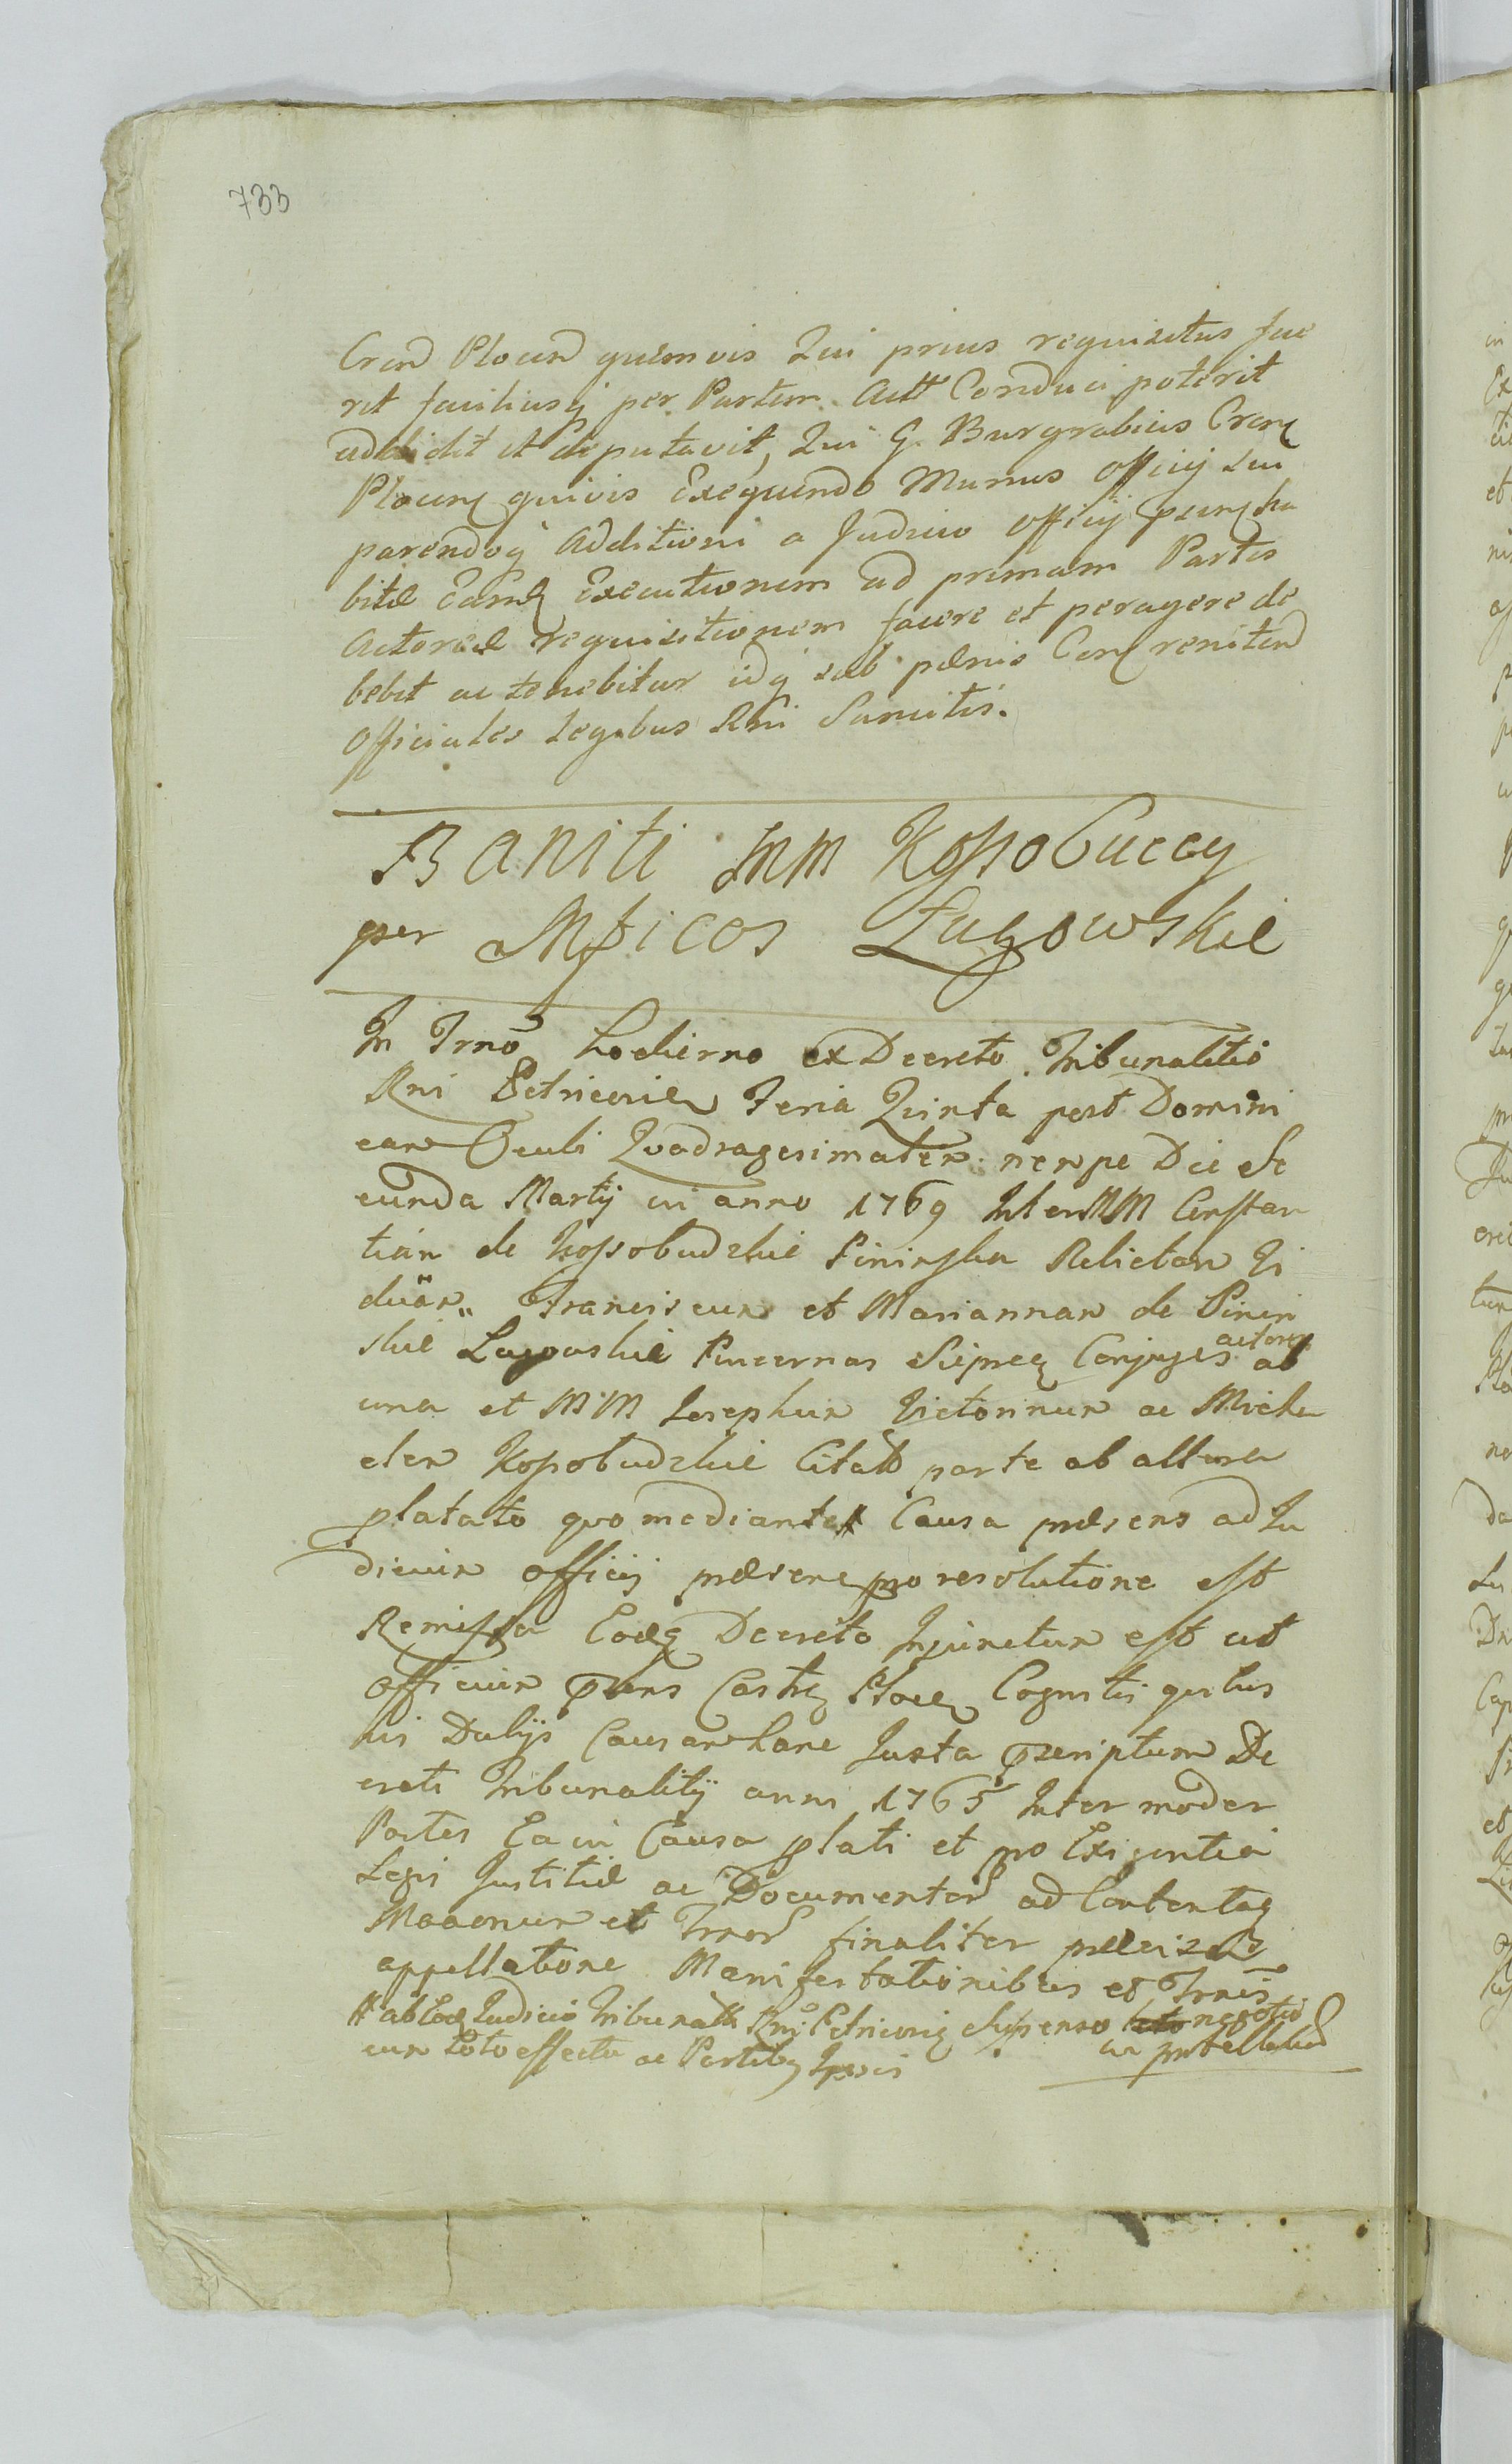 733
Cren Plocen quemvis Qui prius requisitus fue
rit faciliusq per Partem Actt Conduci poterit
addidit et deputavit, Qui G. Burgrabius Cren
Plocen quivis Exequendo Munus Officij sui
parendoq Additioni a Judicio Officij
bitæ Eamq Executionem ad primam Partis
Actoreæ requisitionem facere et peragere de
bebit ac tenebitur idq sub pœnis Con reniten
Officiales Legibus Rni Sancitis.
Baniti MM Kossobuccy
per Mficos Łagowskie
In Trno hodierno ex Decreto Tribunalitio
Rni Petricovien Feria Quinta post Domini
cam Oculi Quadragesimalem nempe Die Se
cunda Martij in anno 1769 Inter MM Constan
tiam de Kossobudzkie Pinińska Relictam Vi
duam Franciscum et Mariannam de Pinin
skie Lagowskie Pincernas Sieprcen Conjuges actores ab
una et MM Josephum Victorinum ac Micha
elem Kossobudzkie Citatt parte ab altera
platato quo mediante # Causa præsens ad Ju
dicium officij præsens pro resolutione est
Remissa Eodq Decreto Injunctum est ut
officium præns Castr Ploc Cognitis quibus
vis Dubijs Causam hanc Juxta præscriptum De
creti Tribunalitij anni 1765 Inter moder
Partes Ea in Causa plati et pro Exigentia
Legis Justitiæ ac Documentor ad Contenta
et Trnor finaliter præcisis
appellatione Manifestationibus et Trnis
# ab Eod Judicio Tribunalit Rni Petricovien suspenso negotio
cum toto effectu ac Partibq Ipsis